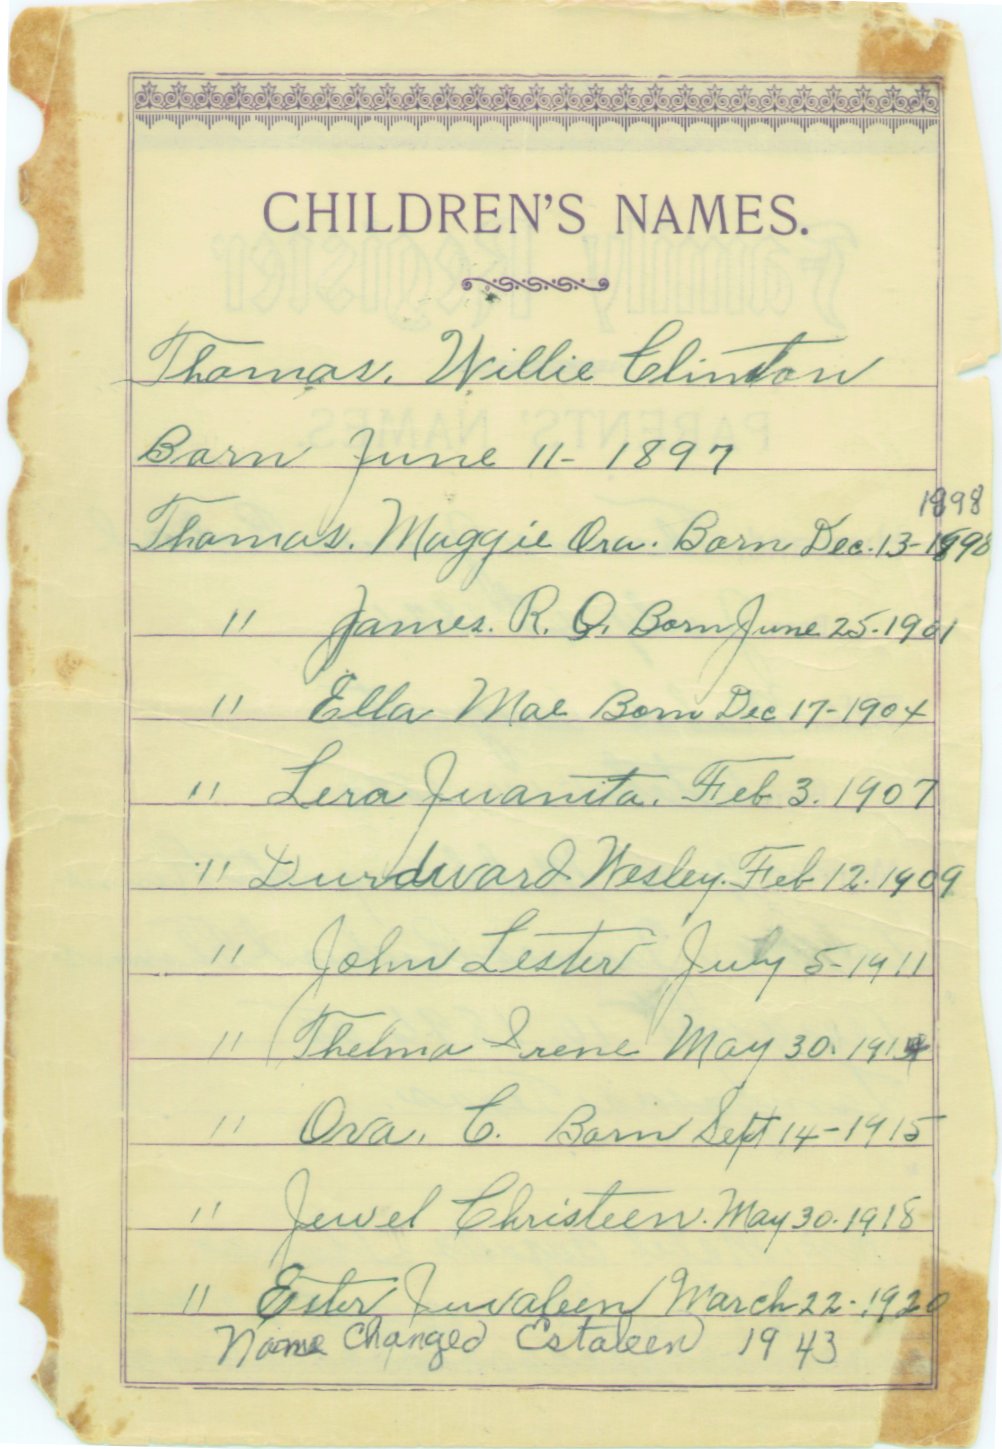 CHILDREN'S NAMES.
Thomas. Willie Clinton
Born June 11- 1897
1898
Thomas. Maggie Ora. Born Dec. 13-1898
" James. R. O. Born June 25-1901
" Ella Mae Born Dec 17-1904
" Lera Juanita. Feb 3. 1907
" Durdward Wesley. Feb 12. 1909
" John Lester July 5-1911
" Thelma Irene May 30. 1914
" Ova. C. Born Sept 14-1915
" Jewel Christeen. May 30. 1918
" Ester Juvaleen March 22-1920
Name Changed Estaleen 1943